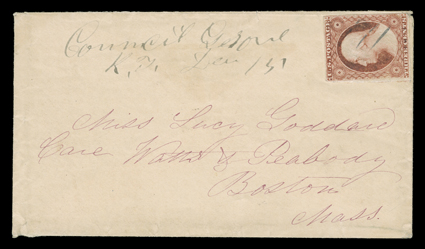 Council Grove
K.T. Jan 131
Miss Lucy Goddard
Care Watts & Peabody
Boston
Mass.